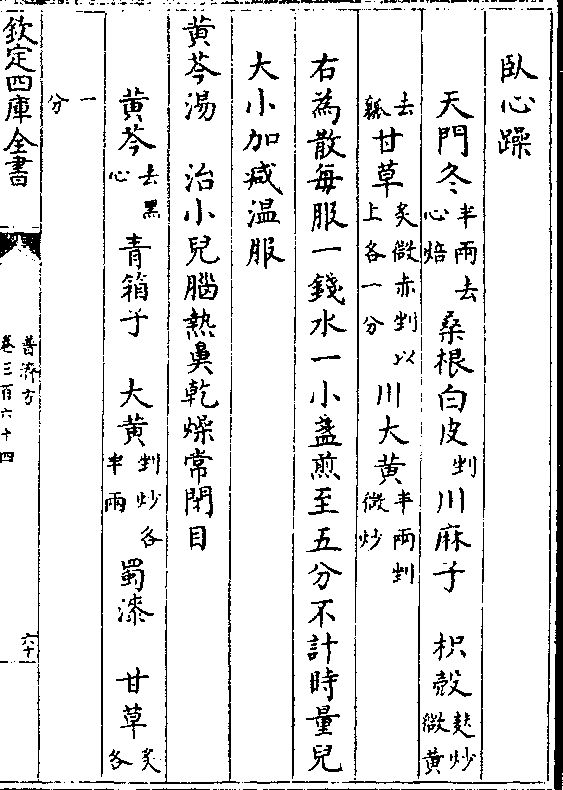 臥心躁
天門冬半兩去心焙 桑根白皮剉 川麻子 枳殼麩炒微黄
去瓤 甘草炙微赤剉以上各一分 川大黄半兩剉微炒
右為散每服一錢水一小盞煎至五分不計時量兒
大小加減温服
黄芩湯 治小兒腦熱鼻乾燥常閉目
黄芩去黒心 青箱子 大黄剉炒各半兩 蜀漆 甘草炙各
一分
欽定四庫全書
普濟方
卷三百六十四
六十